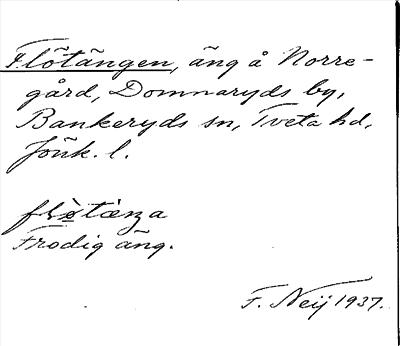 Flötängen, äng å Norre-
gård, Domnaryds by,
Bankeryds sn, Tveta hd,
Jönk. l.
Frodig äng.
F. Neij 1937.